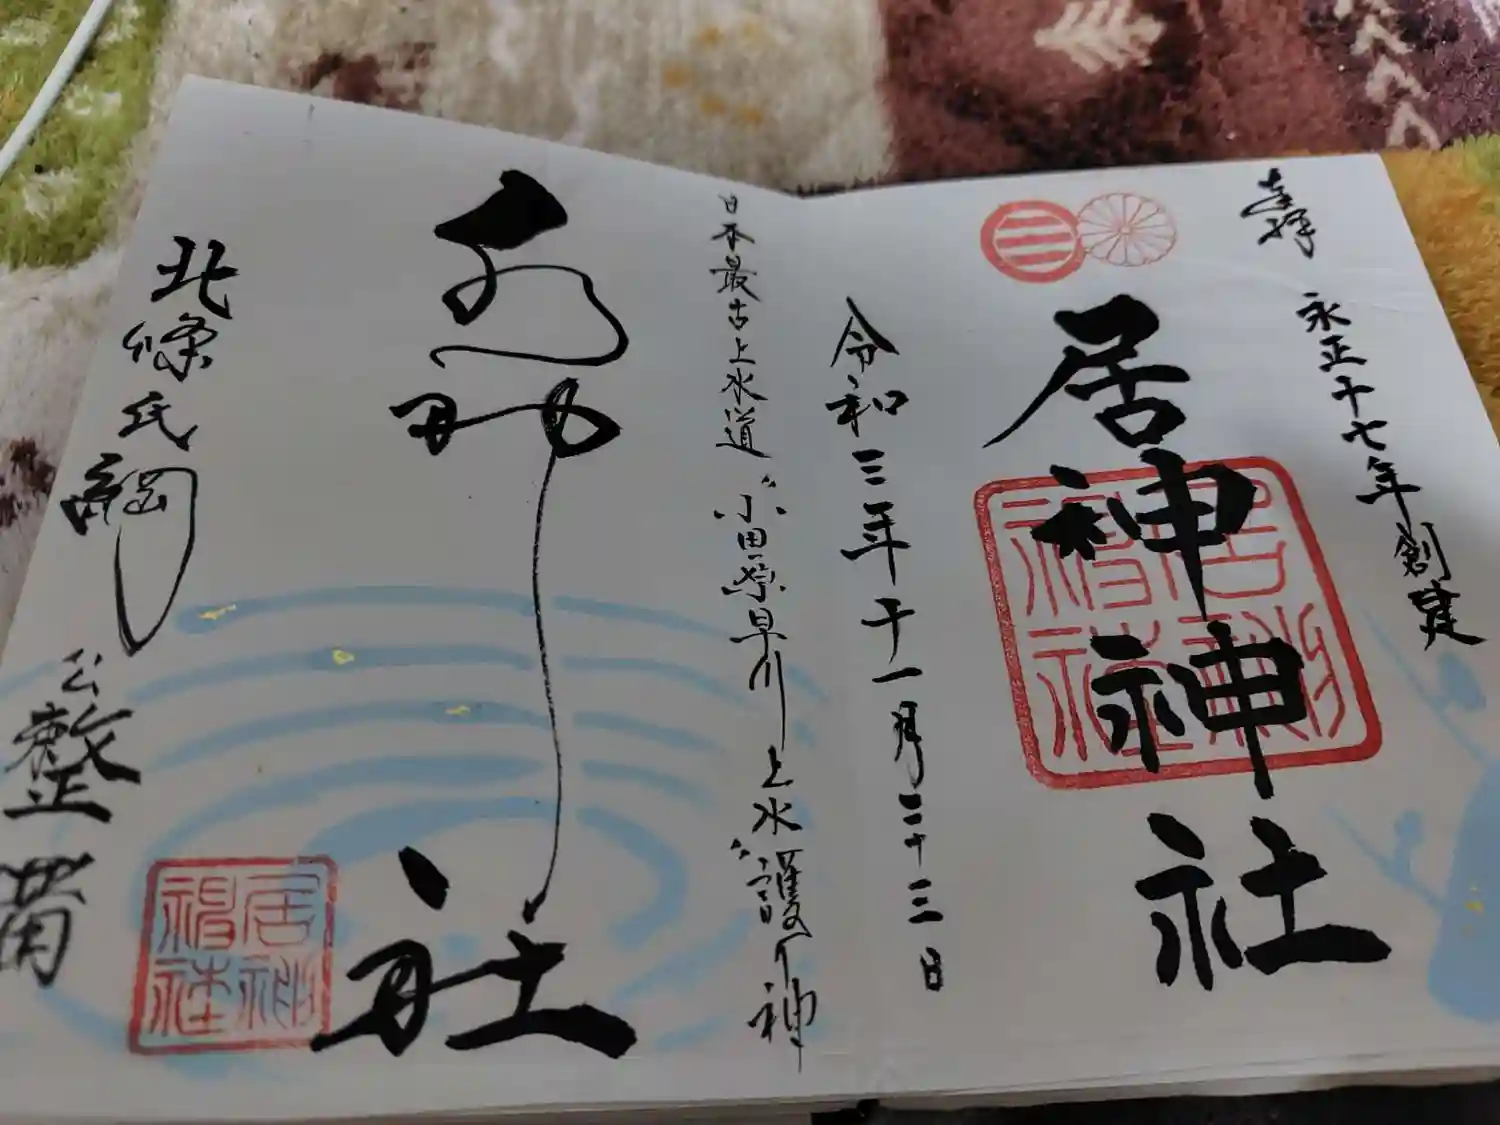 奉拝
永正十七年創建
居神神社
居神神社
令和三年十一月二十三日
日本最古上水道
“小田原早川上水”護り神
水神社
北條氏綱公整備
居神神社